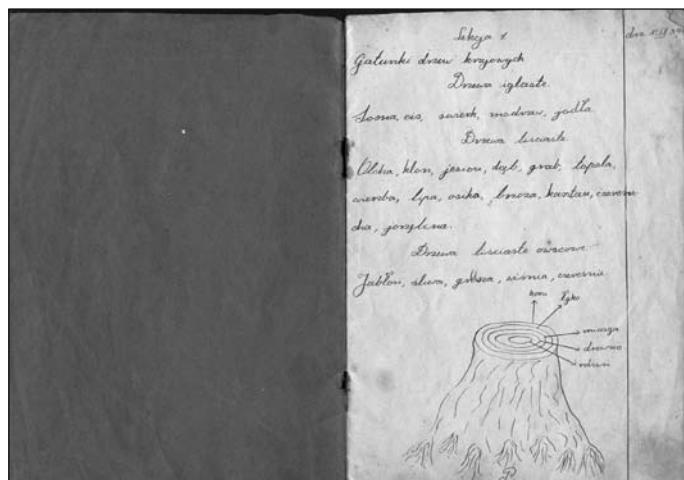 Lekcja 1
dn. 
Gatunki drzew krajowych
Drzewa iglaste.
Sosna, cis, świerk, modrzew, jodła
Drzewa liściaste
Olcha, klon, jesion, dąb, grab, topola,
wierzba, lipa, osika, brzoza, kasztan, czerem
cha, jarzębina.
Drzewa liściaste owocowe
Jabłoń, śliwa, grusza, wiśnia, czereśnia
kora
łyko
miazga
drewno
rdzeń